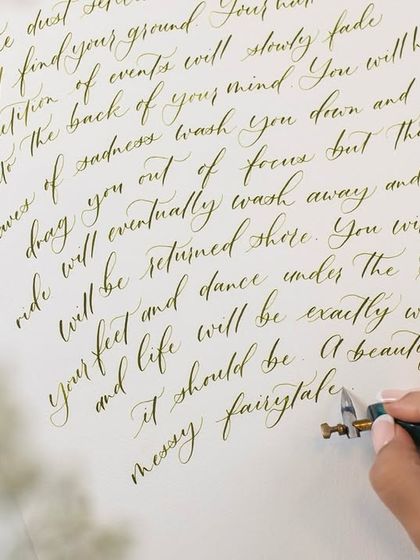 dust
find your ground. Your
of events will slowly fade
to the back of your mind. You will
of sadness wash you down and
drag you out of focus but the
ride will eventually wash away and
will be returned shore. You
your feet and dance under the
and life will be exactly
it should be. A beauti
messy fairytale.